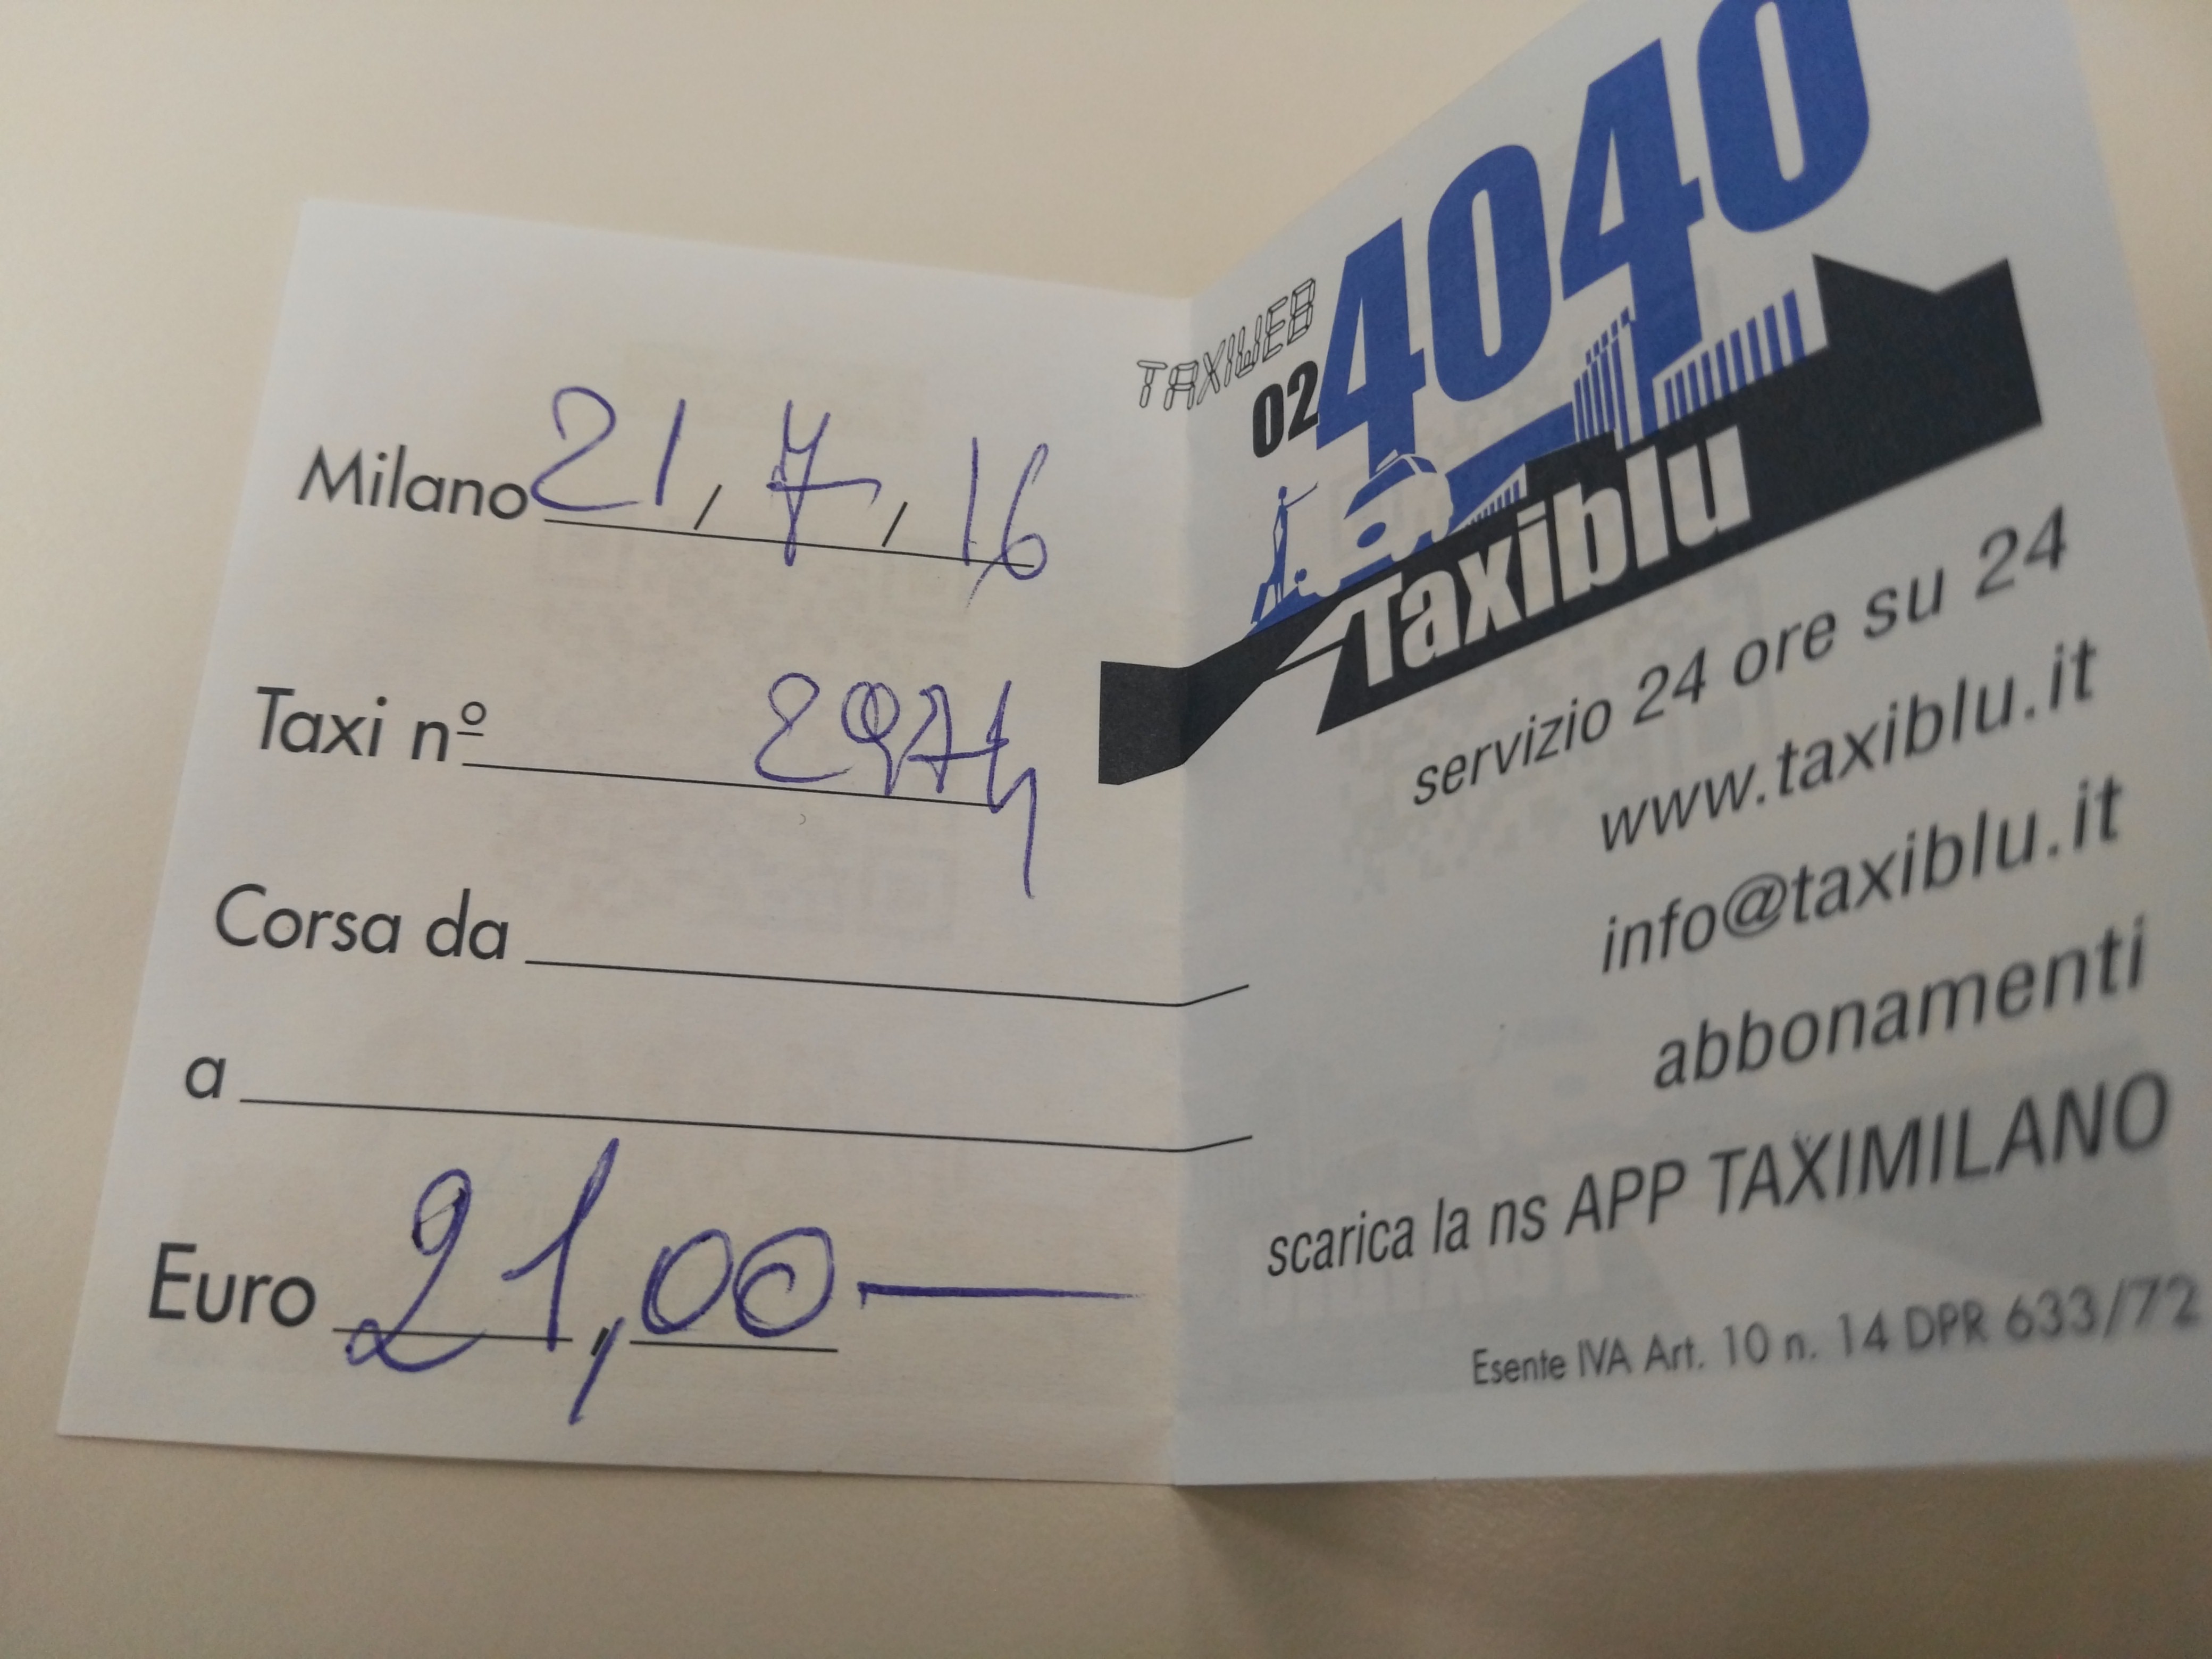 Milano 21/7/16
Taxi nº 2974
Corsa da
a
Euro 21,00
TAXIWEB
024040
Taxiblu
servizio 24 ore su 24
www.taxiblu.it
info@taxiblu.it
abbonamenti
scarica la ns APP TAXIMILANO
Esente IVA Art. 10 n. 14 DPR 633/72